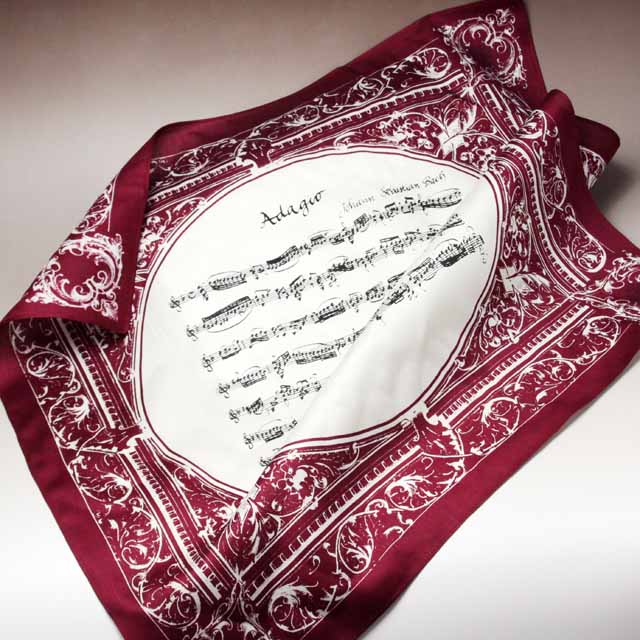 Adagio
Johann Sebastian Bach